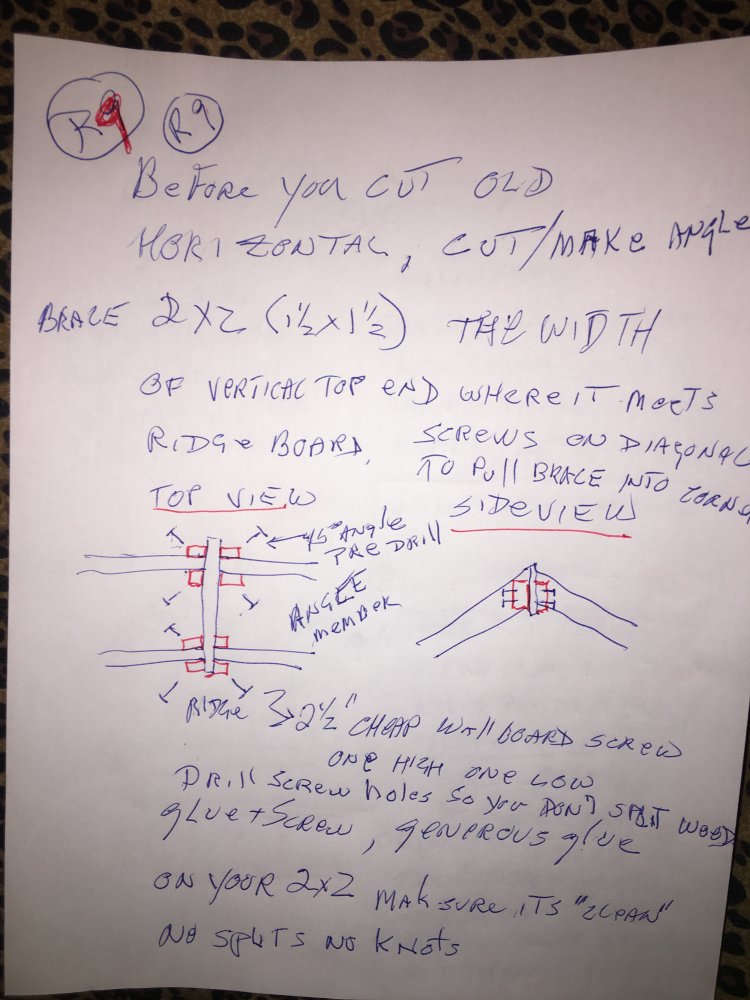 R9 R9
Before you CUT OLD
HORIZONTAL, CUT/MAKe ANGLe
BRACE 2X2 (1½x1½) THE WIDTH
OF VERTICAL TOP eND WHERE IT MeeTS
RIDGe BOARD, SCREWS ON DIAGONAL
TO Pull BRACE INTO CORNER
TOP VIEW SIDeVIEW
45° ANGLe
PRE DRIll
ANGLE
member
RIDGe 2½" CHEAP WAllBOARD SCREW
ONE HIGH ONE LOW
DRIll SCREW HOLES SO YOU DON'T SPLIT WOOD
GLUE + SCREW, GENEROUS GLUE
ON YOUR 2X2 MAK SURE ITS "CLEAN"
NO SPLITS NO KNOTS